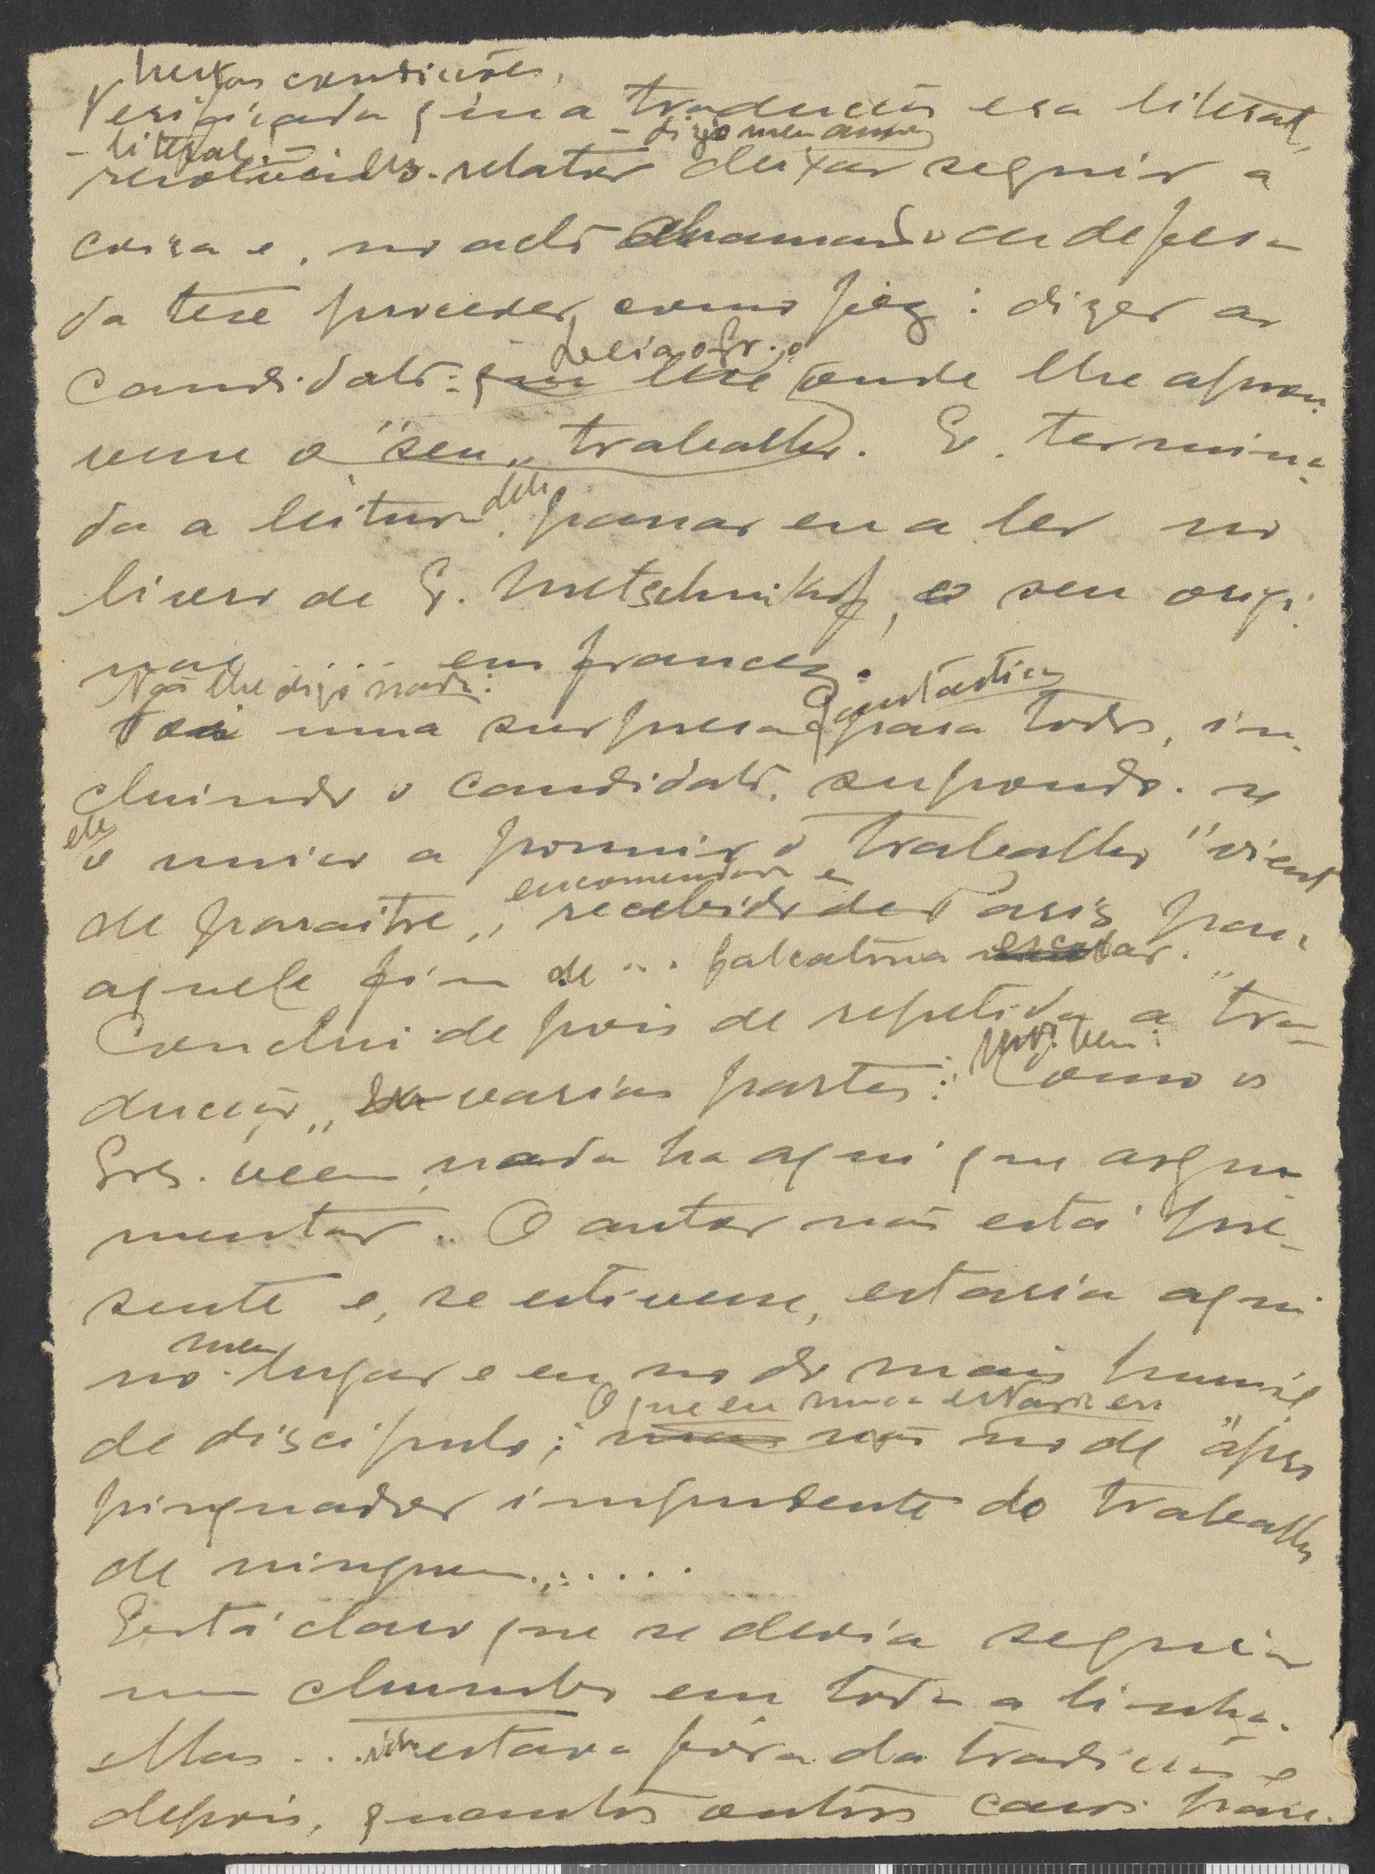 Nestas condicções,
Verificada que a traducção era literal,
- literal - - digo meu amo
resolvi relator deixar seguir a
coisa e, no acto chamando a defesa
da tese proceder como fiz: dizer ao
candidato: leia o Sr.
que leia onde lhe aprou-
vesse o "seu" trabalho. E, termina-
da a leitura dele, passar eu a ler no
livro de E. Metschnikof, o seu origi-
nal ... em francez.
Não lhe digo nada: fantastica
Foi uma surpresa para todos, in-
cluindo o candidato, suppondo-se
ele
o unico a possuir o trabalho "vient
de paraitre", encomendado e
recebido de Paris para
aquele fim de ... falcatrua escolar.
Conclui depois de repetida a "tra-
ducção" em varias partes: muito bem: Como os
Srs. veem, nada ha aqui que argu-
mentar. O autor não está pre-
sente e, se estivesse, estaria aqui
no meu lugar e eu no do mais humilde
de discipulo; o que eu nunca estaria era
mas não no de "apro-
pinquador" imprudente do trabalho
de ninguem......
Está claro que se devia seguir
um chumbo em toda a linha.
Mas ... isso estava fóra da tradicção e
depois, quantos outros casos pare-